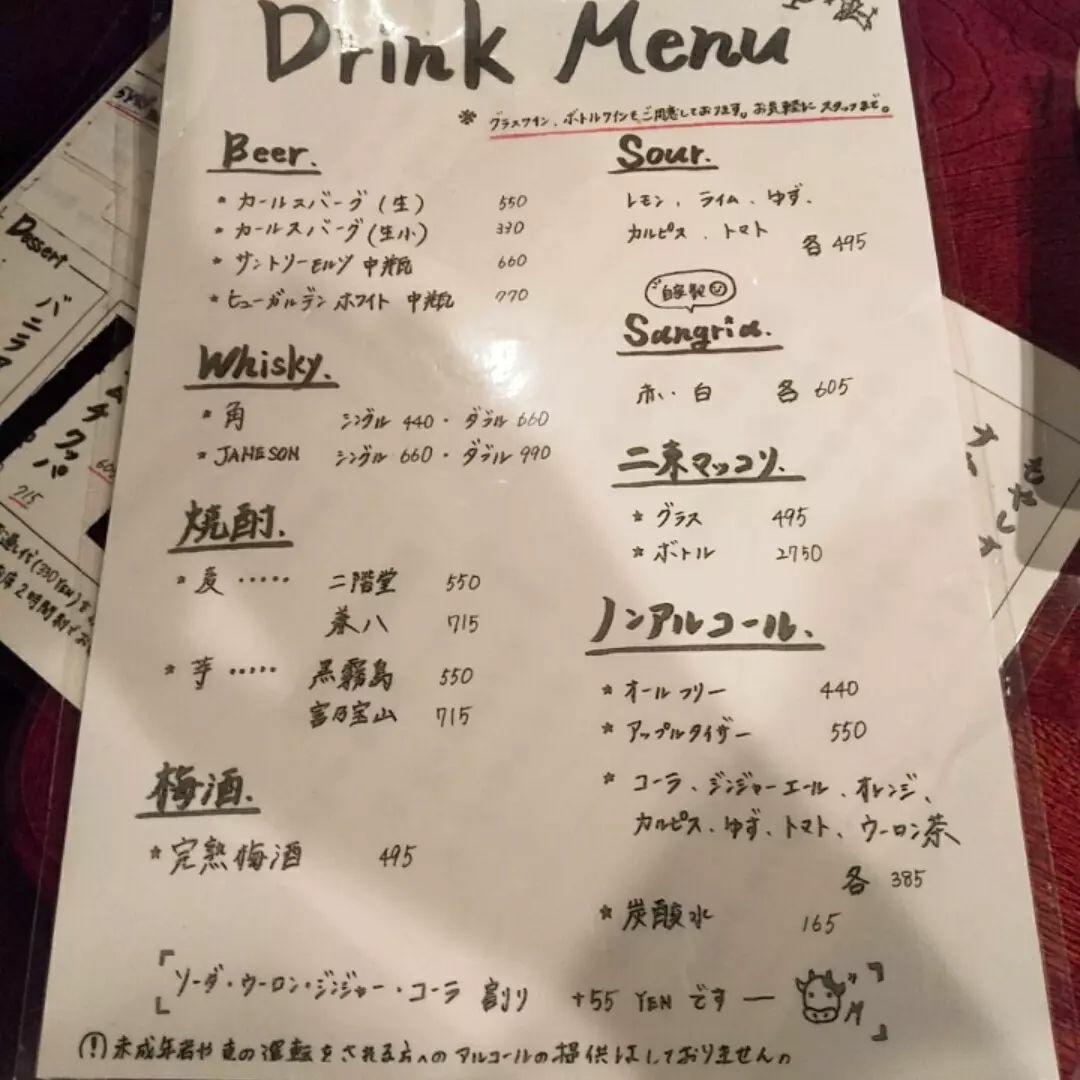 Drink Menu
* グラスワイン、ボトルワインもご用意しております。お気軽にスタッフまで。
Beer.
* カールスバーグ(生) 550
* カールスバーグ(生小) 330
* サントリーモルツ 中瓶 660
* ヒューガルデン ホワイト 中瓶 770
Whisky.
* 角 シングル 440・ダブル 660
* JAMESON シングル 660・ダブル 990
焼酎.
* 麦 ····· 二階堂 550
兼八 715
* 芋 ····· 黒霧島 550
富乃宝山 715
梅酒.
* 完熟梅酒 495
Sour.
レモン、ライム、ゆず、
カルピス、トマト
各 495
自家製
Sangria.
赤・白 各 605
二東マッコリ.
* グラス 495
* ボトル 2750
ノンアルコール.
* オールフリー 440
* アップルタイザー 550
* コーラ、ジンジャーエール、オレンジ、
カルピス、ゆず、トマト、ウーロン茶
各 385
* 炭酸水 165
『ソーダ・ウーロン・ジンジャー・コーラ 割り +55 YEN です ー 』
(!) 未成年者や車の運転をされる方へのアルコールの提供はしておりません。
Dessert
バニラア
クッパ
715
もやしナ